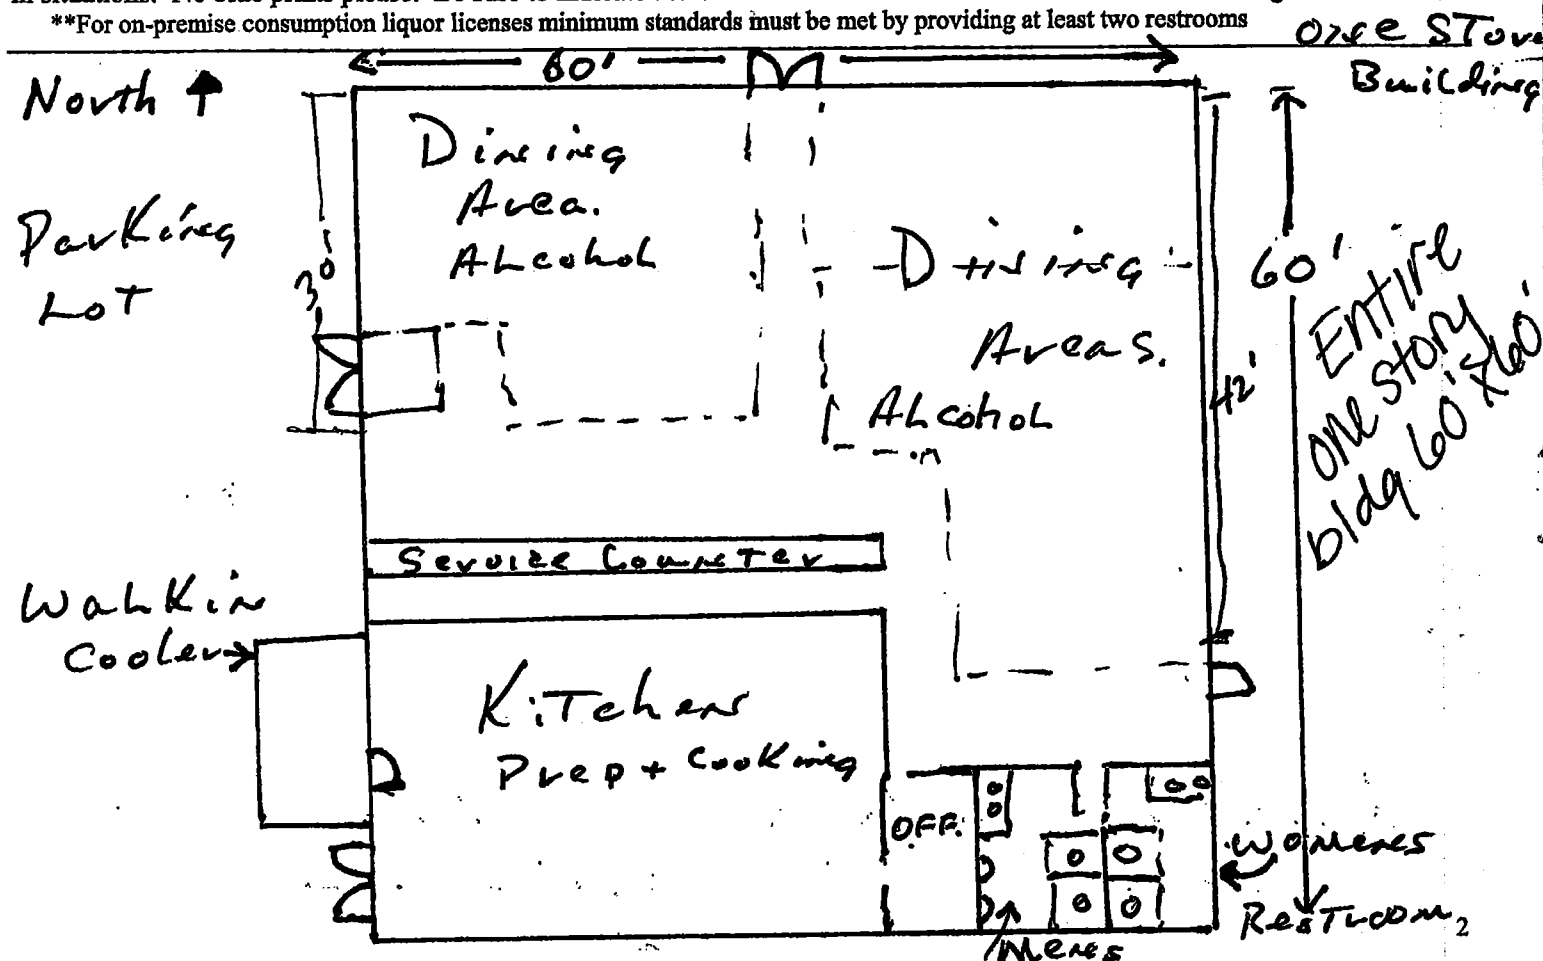 **For on-premise consumption liquor licenses minimum standards must be met by providing at least two restrooms
One Story
Building
60'
North
Parking
Lot
Dining
Area.
Alcohol
30'
Dining
Areas.
Alcohol
42'
60'
Entire
one story
bldg 60'x60'
Service Counter
Walkin
Cooler
Kitchen
Prep + Cooking
OFF.
Womens
Restroom
Mens
2